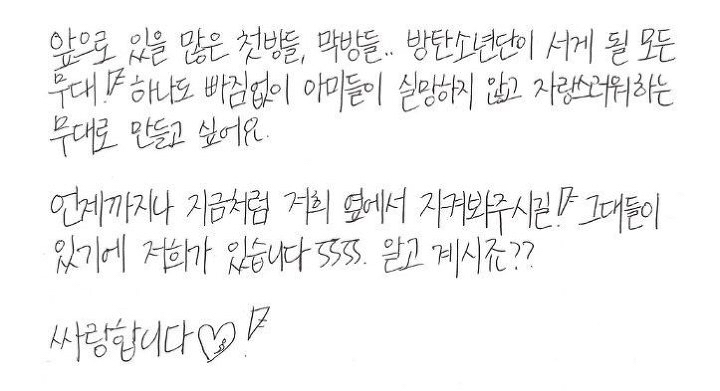 앞으로 있을 많은 첫방들, 막방들.. 방탄소년단이 서게 될 모든
무대! 하나도 빠짐없이 아미들이 실망하지 않고 자랑스러워하는
무대로 만들고 싶어요.
언제까지나 지금처럼 저희 옆에서 지켜봐주시길! 그대들이
있기에 저희가 있습니다 ㅎㅎㅎㅎ. 알고 계시죠??
싸랑합니다♡!